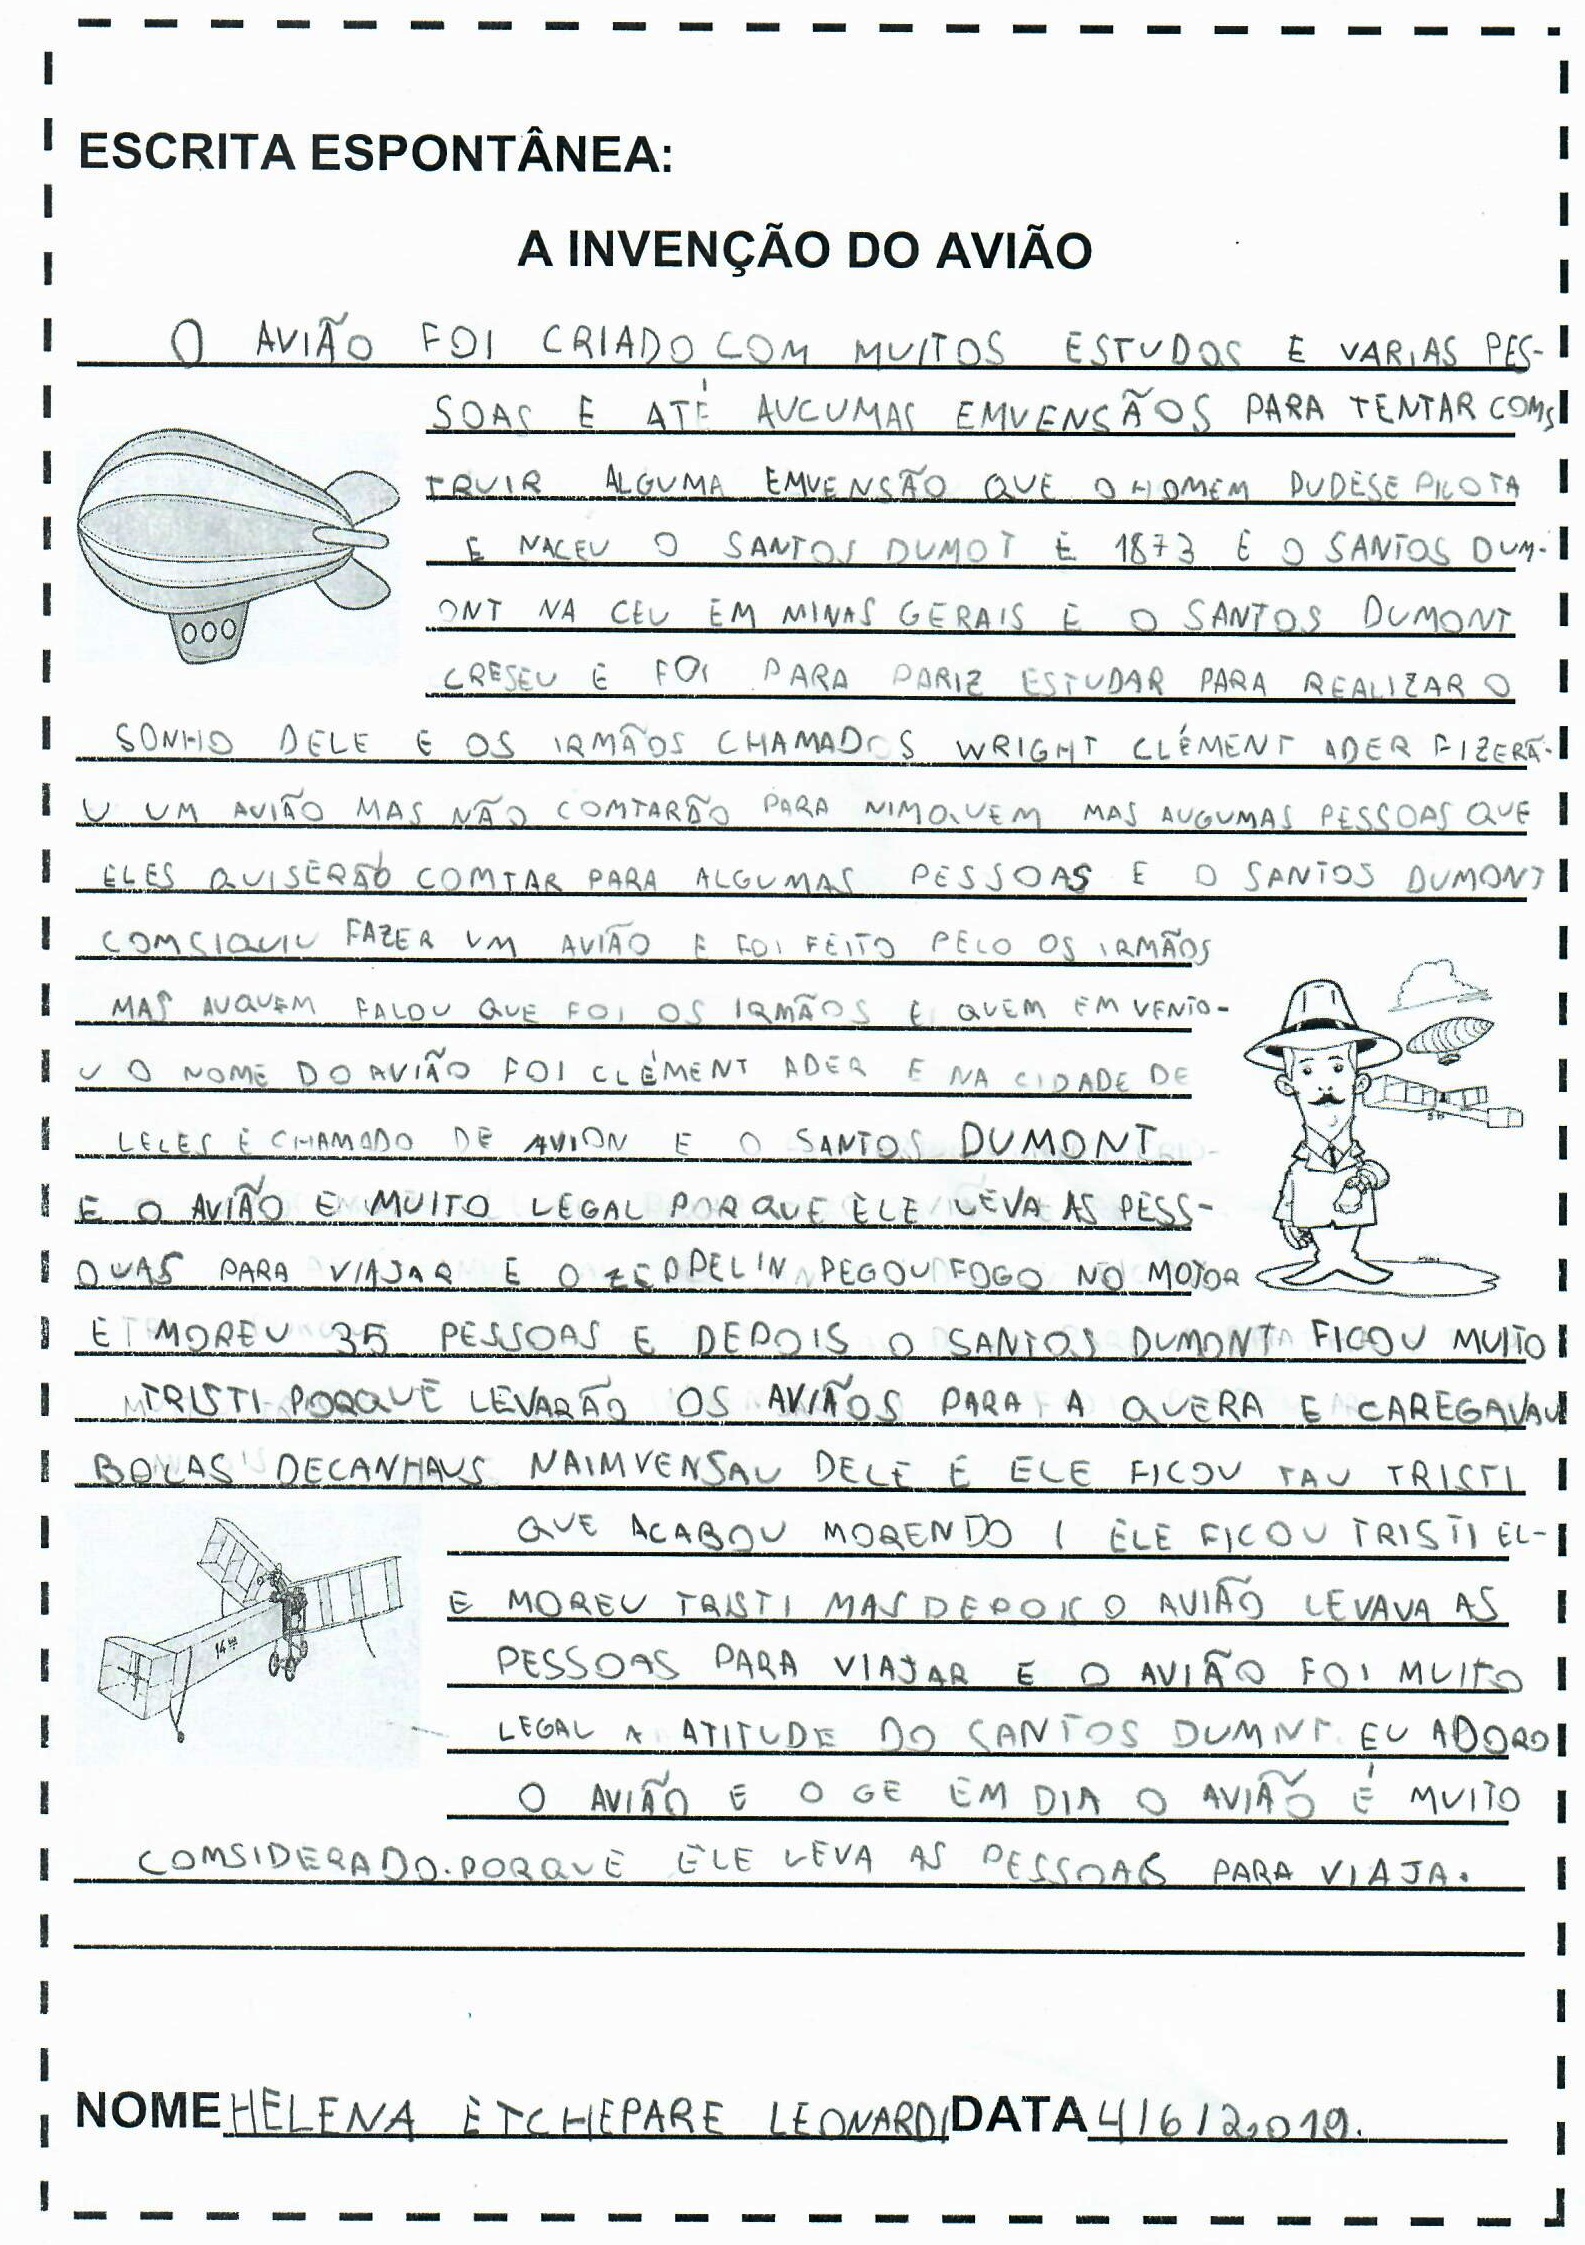 ESCRITA ESPONTÂNEA:
A INVENÇÃO DO AVIÃO
O AVIÃO FOI CRIADO COM MUITOS ESTUDOS E VARIAS PES-
SOAS E ATÉ AUCUMAS EMVENSÃOS PARA TENTAR COMS
TRUIR ALGUMA EMVENSÃO QUE O HOMEM PUDESE PILOTA
E NACEU O SANTOS DUMOT E 1873 E O SANTOS DUM-
ONT NA CEU EM MINAS GERAIS E O SANTOS DUMONT
CRESEU E FOI PARA PARIZ ESTUDAR PARA REALIZAR O
SONHO DELE E OS IRMÃOS CHAMADOS WRIGHT CLÉMENT ADER FIZERÃ-
U UM AVIÃO MAS NÃO COMTARÃO PARA NIMQUEM MAS AUGUMAS PESSOAS QUE
ELES QUISERÃO COMTAR PARA ALGUMAS PESSOAS E O SANTOS DUMONT
COMSIQUIU FAZER UM AVIÃO E FOI FEITO PELO OS IRMÃOS
MAS AUQUEM FALOU QUE FOI OS IRMÃOS E QUEM EMVENTO-
U O NOME DO AVIÃO FOI CLÉMENT ADER E NA CIDADE DE
LELES E CHAMADO DE AVION E O SANTOS DUMONT
E O AVIÃO E MUITO LEGAL PORQUE ELE LEVA AS PESS-
OUAS PARA VIAJAR E O ZEPPELIN PEGOU FOGO NO MOTOR
E MOREU 35 PESSOAS E DEPOIS O SANTOS DUMONT FICOU MUITO
TRISTI PORQUE LEVARÃO OS AVIÃOS PARA A QUERA E CAREGAVAU
BOLAS DECANHAUS NAIMVENSAU DELE E ELE FICOU TAU TRISTI
QUE ACABOU MORENDO I ELE FICOU TRISTI EL-
E MOREU TRISTI MAS DEPOIS O AVIÃO LEVAVA AS
PESSOAS PARA VIAJAR E O AVIÃO FOI MUITO
LEGAL A ATITUDE DO SANTOS DUMNT. EU ADORO
O AVIÃO E O GE EM DIA O AVIÃO É MUITO
COMSIDERADO.PORQUE ELE LEVA AS PESSOAS PARA VIAJA.
14 bis
NOME HELENA ETCHEPARE LEONARDI DATA 4/6/2019.